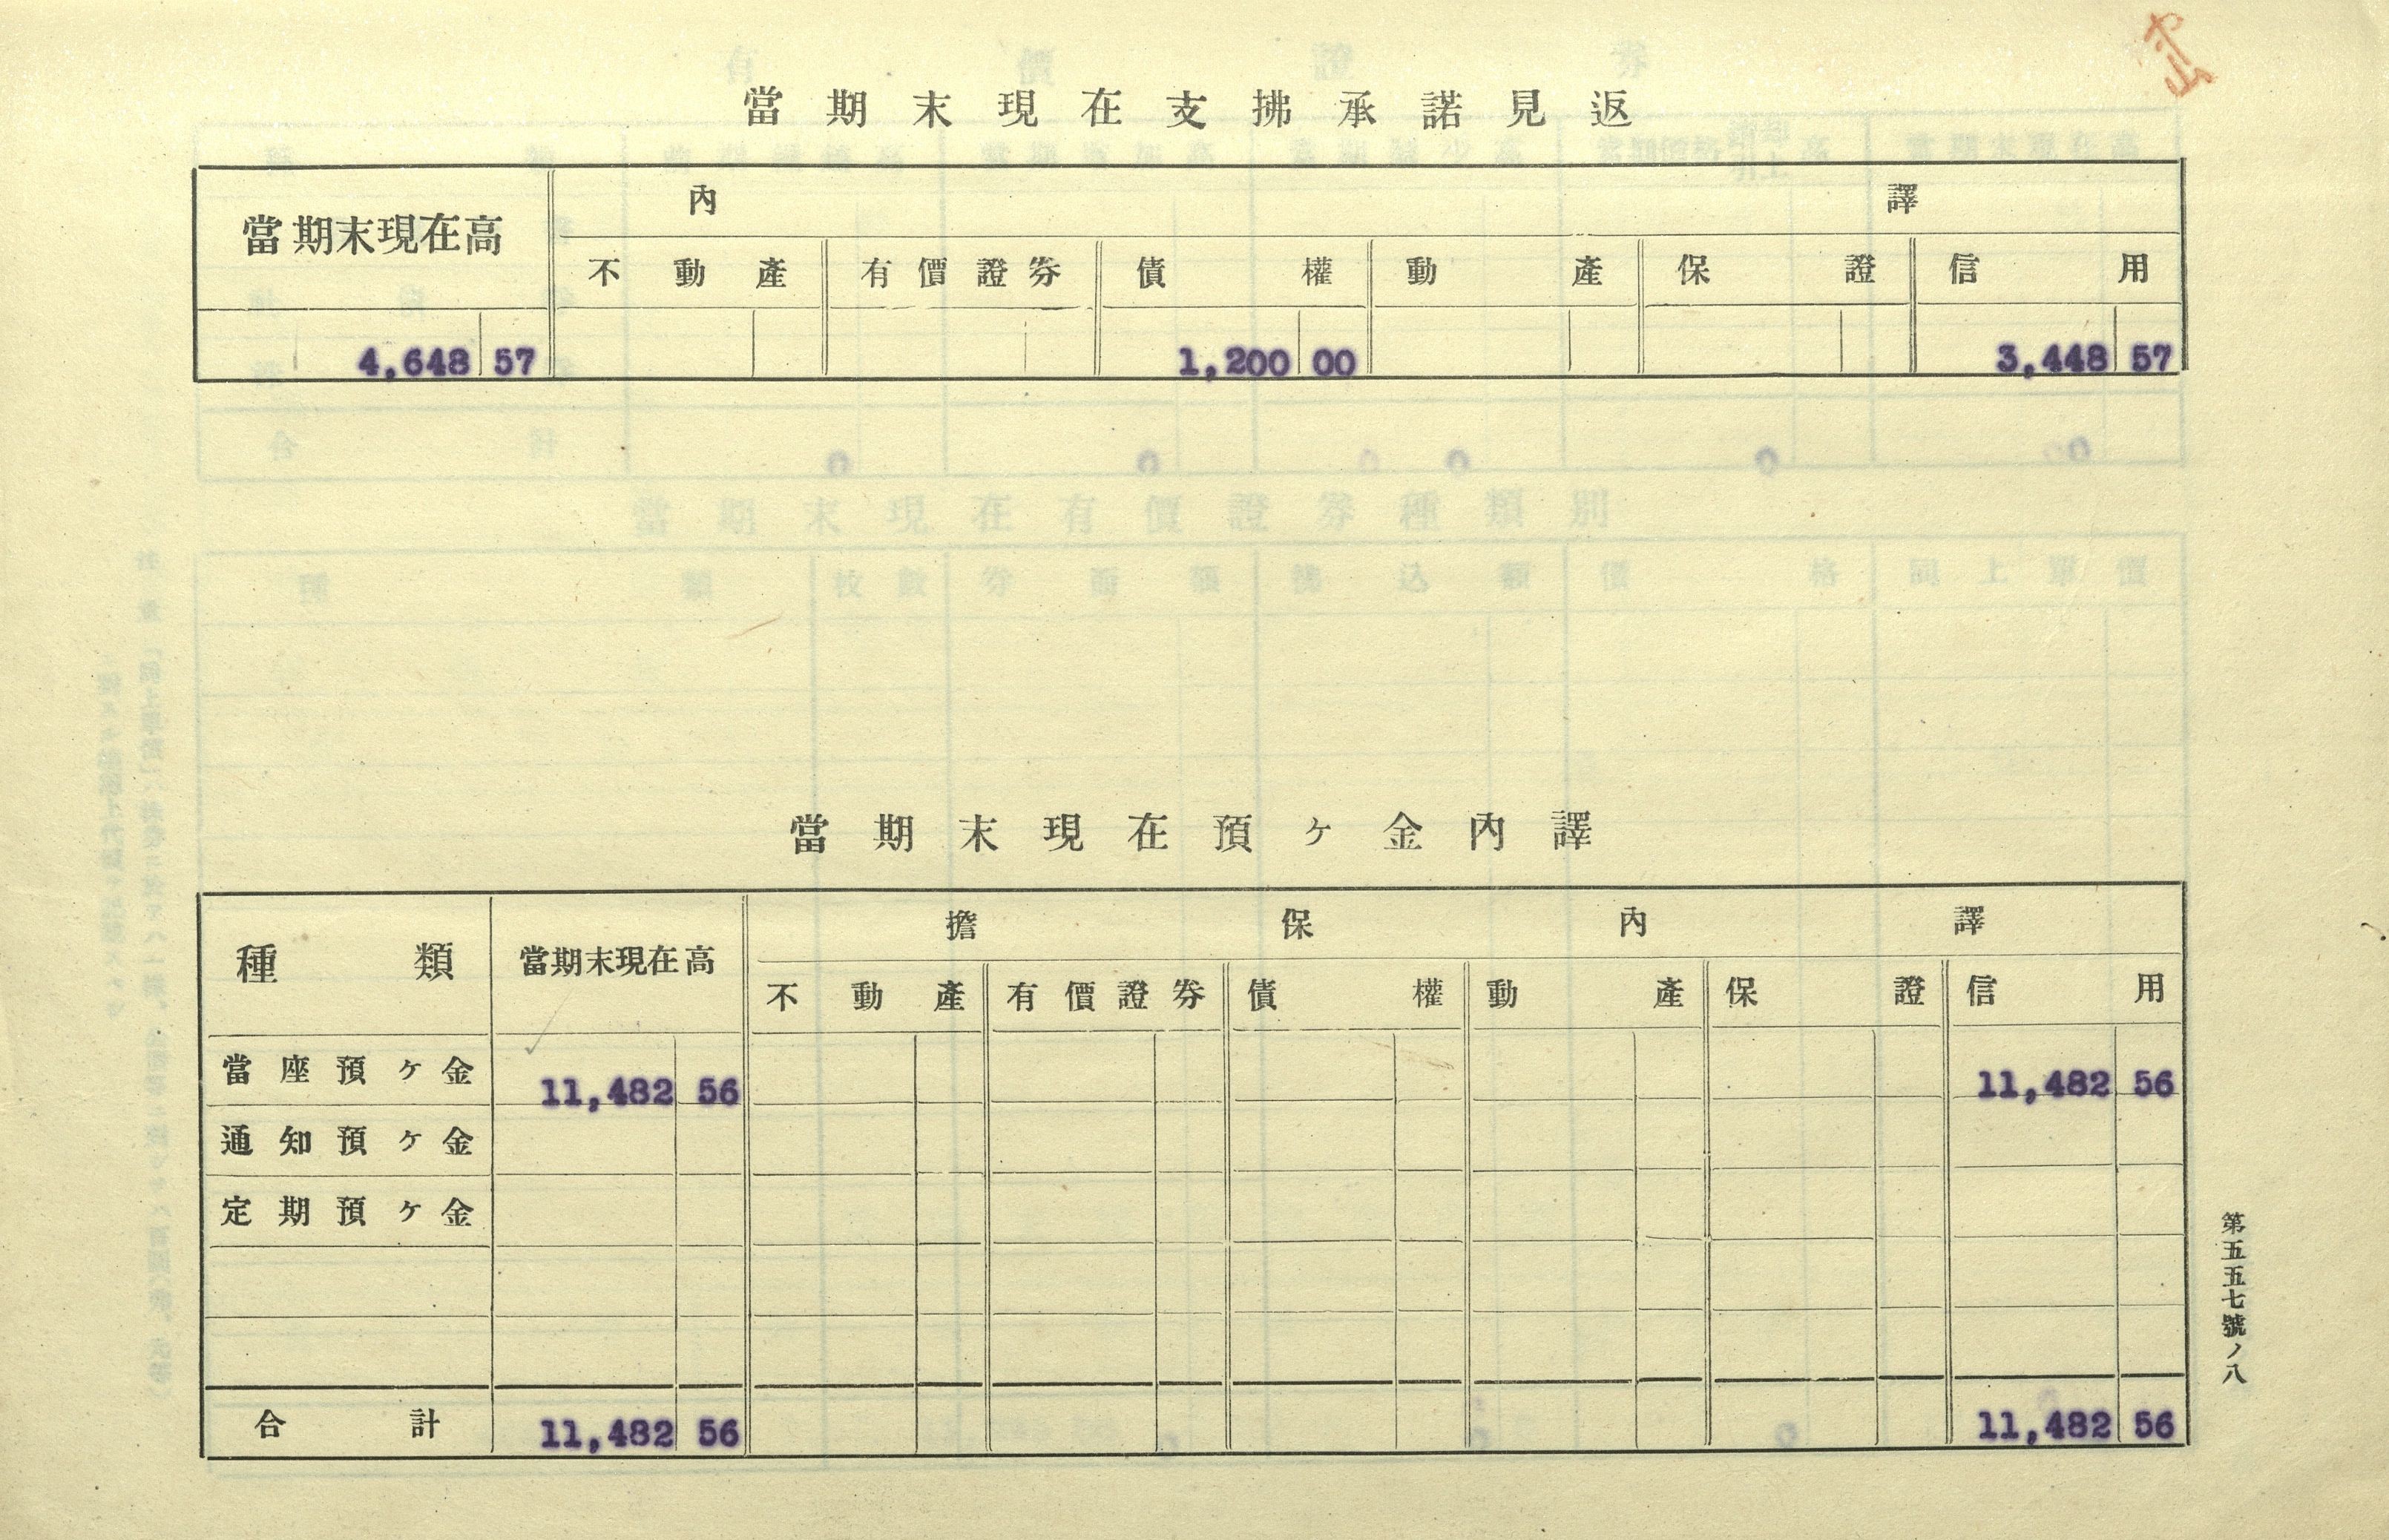 當期末現在支拂承諾見返
當期末現在高 內譯
不動產 有價證券 債權 動產 保證 信用
4,648 57 1,200 00 3,448 57
當期末現在預ヶ金內譯
種類 當期末現在高 擔保內譯
不動產 有價證券 債權 動產 保證 信用
當座預ヶ金 11,482 56 11,482 56
通知預ヶ金
定期預ヶ金
合計 11,482 56 11,482 56
第五五七號ノ八